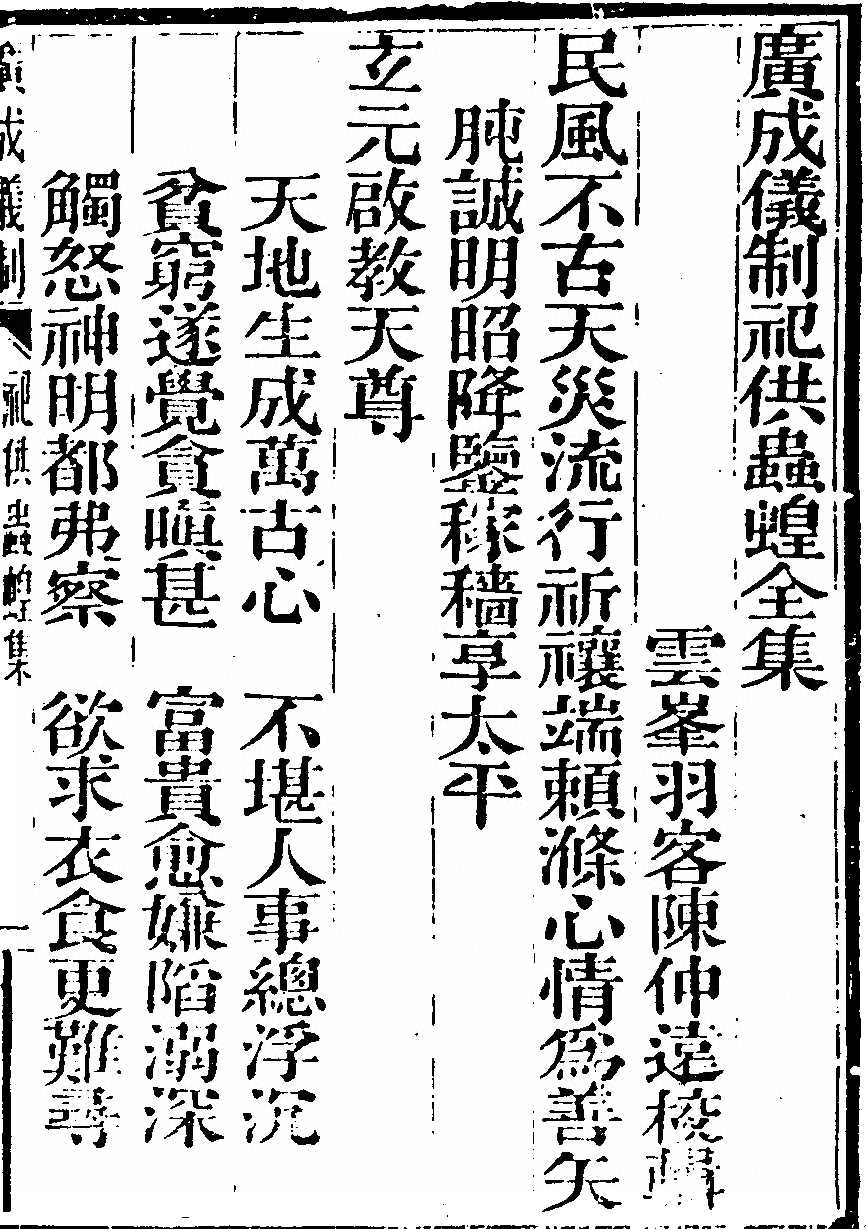 廣成儀制祀供蟲蝗全集
雲峯羽客陳仲遠校輯
民風不古天災流行祈禳端賴滌心情為善矢
肫誠明昭降鑒稼穡享太平
玄元啟教天尊
天地生成萬古心　不堪人事總浮沉
貧窮遂覺貪嗔甚　富貴愈嫌陷溺深
觸怒神明都弗察　欲求衣食更難尋
廣成儀制　祀供蟲蝗集　一